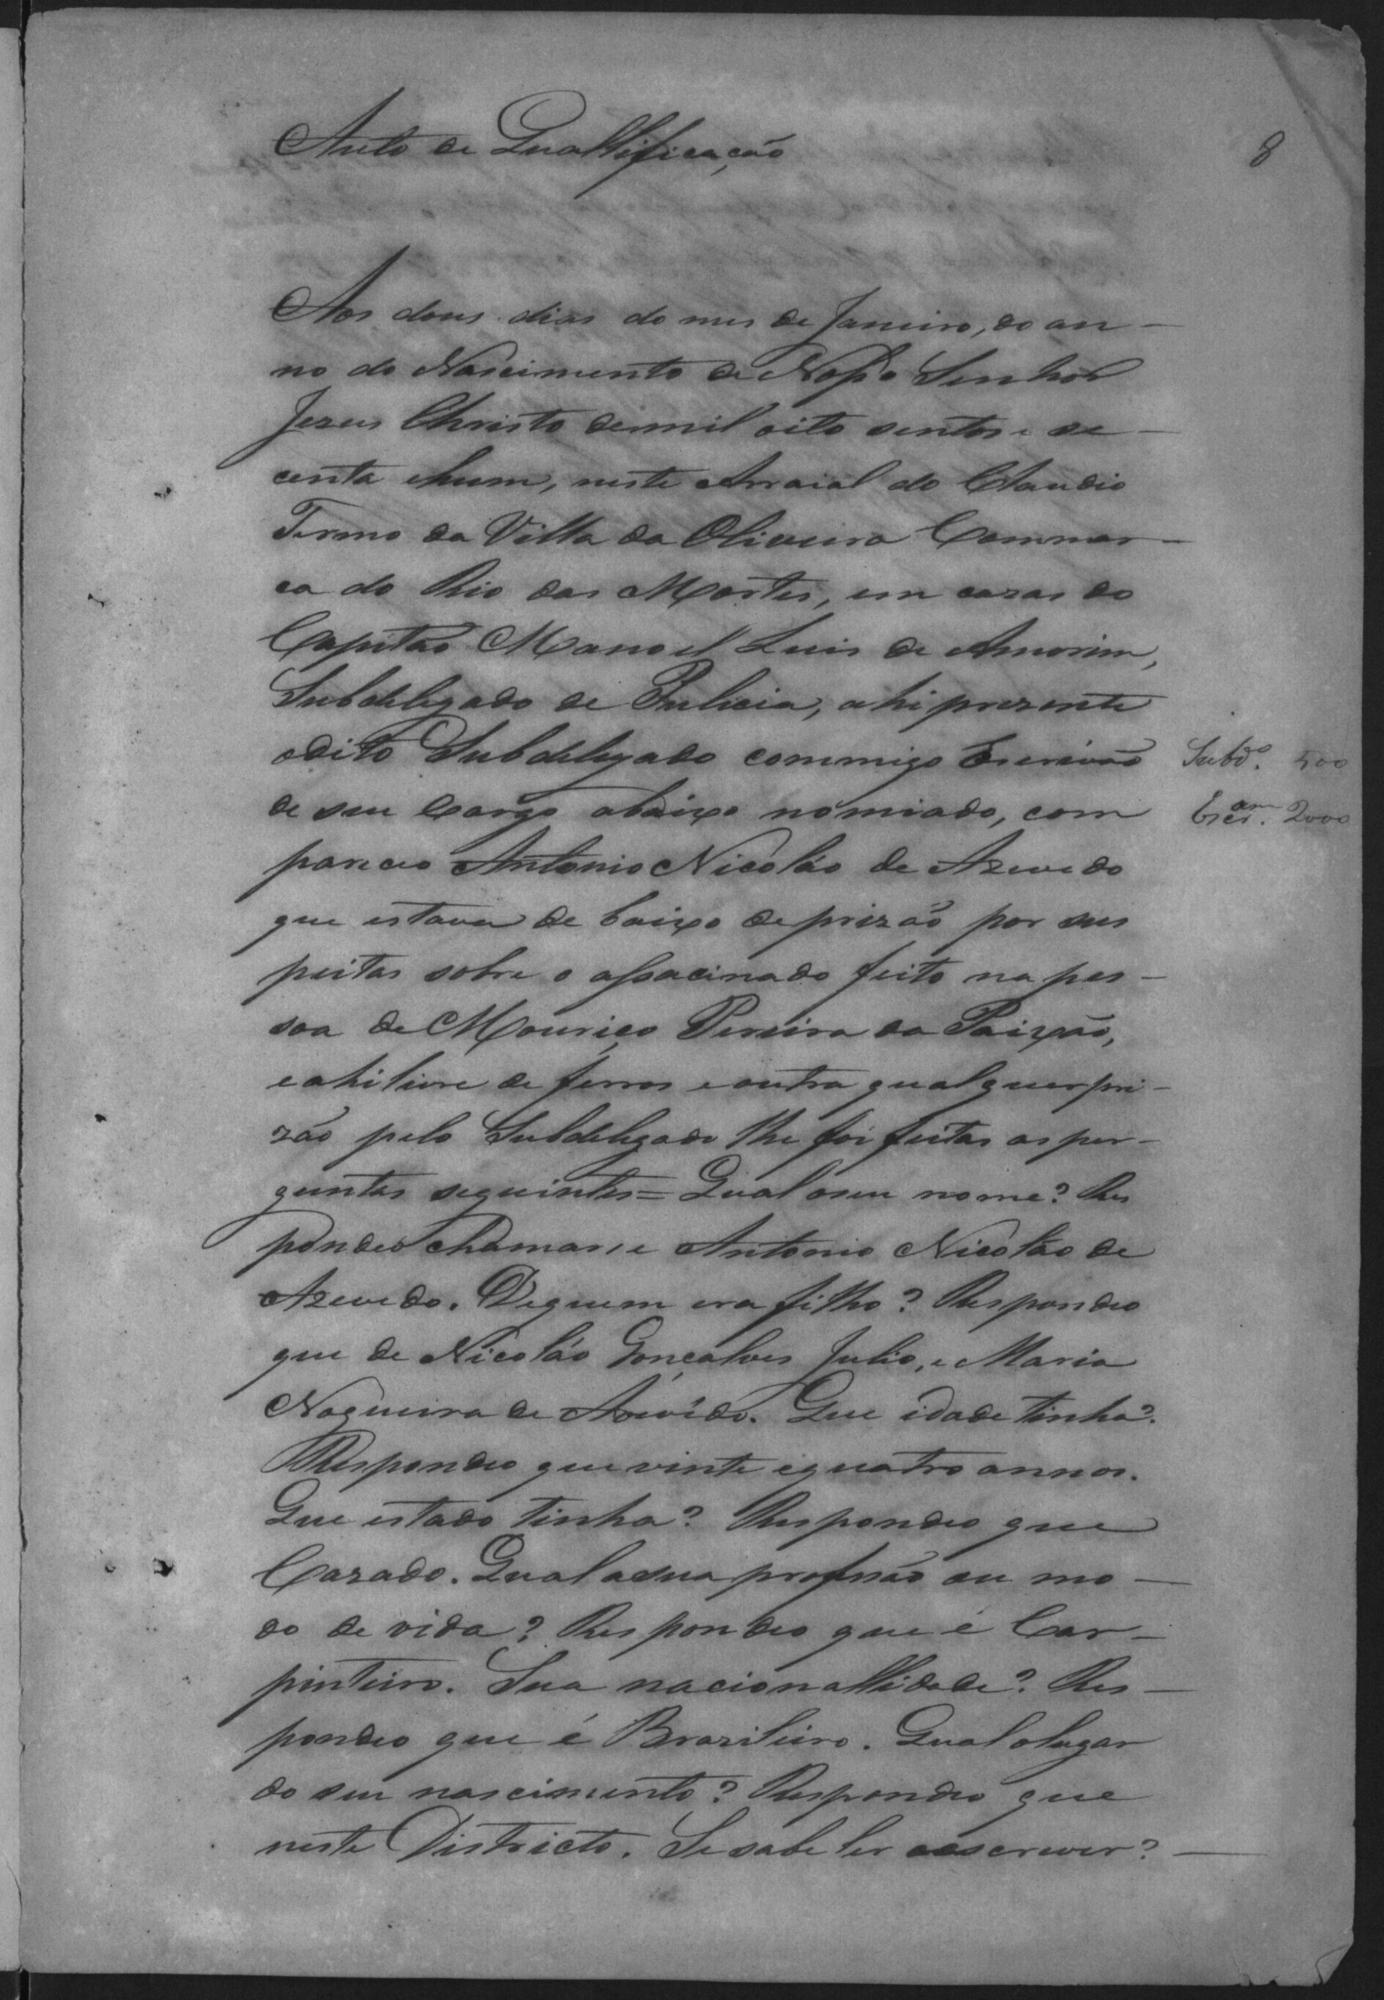 8
Auto de Quallificação
Aos dous dias do mes de Janeiro, do an-
no do Nascimento de Nosso Senhor
Jezus Christo demil oito sentos e se-
centa ehum, neste Arraial do Claudio
Termo da Villa da Oliveira Commar-
ca do Rio das Mortes, em cazas do
Capitão Manoel Luis de Amorim,
Subdelegado de Pulicia, ahi prezente
odito Subdelegado commigo Escrivão
Subdo. 500
de seu Cargo abaixo nomiado, com
Escr. 2000
pareceo Antonio Nicoláo de Azevedo
que estava de baixo deprizão por sus
peitas sobre o assacinado feito na pes-
soa de Mouriço Pereira da Paixão,
e ahi livre de ferros e outra qualquer pri-
zão pelo Subdelegado lhe foi feitas as per-
guntas seguintes = Qual oseu nome? Res
pondeo chamarse Antonio Nicoláo de
Azevedo. Dequem era filho? Respondeo
que de Nicoláo Gonçalves Julio, e Maria
Nogueira de Azevêdo. Que idade tinha?
Respondeo que vinte equatro annos.
Que estado tinha? Respondeo que
Cazado. Qual asua profissão ou mo-
do de vida? Respondeo que é Car-
pinteiro. Sua nacionallidade? Res-
pondeo que é Brazileiro. Qual olugar
do seu nascimento? Respondeo que
neste Districto. Se sabe ler eescrever?